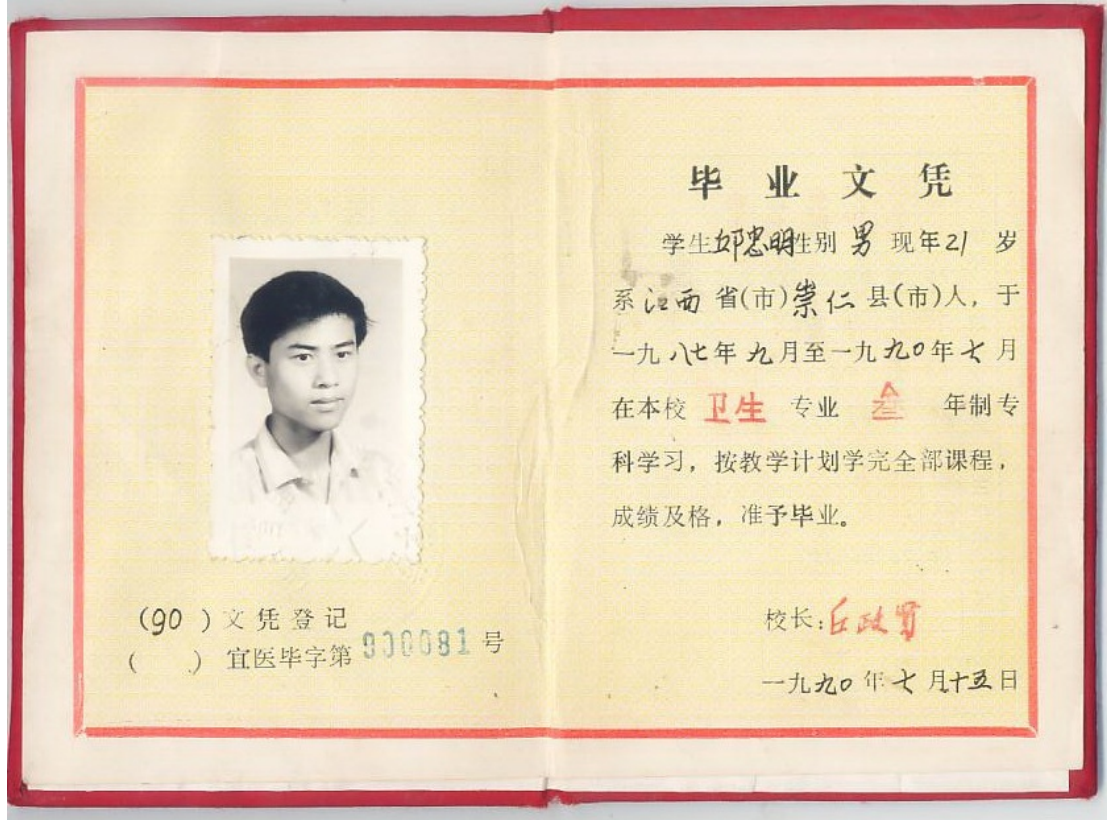 (90)文凭登记
( )宜医毕字第900081号
毕业文凭
学生邱忠明性别男现年21岁
系江西省(市)崇仁县(市)人，于
一九八七年九月至一九九〇年七月
在本校卫生专业叁年制专
科学习，按教学计划学完全部课程，
成绩及格，准予毕业。
校长：丘政贤
一九九〇年七月十五日